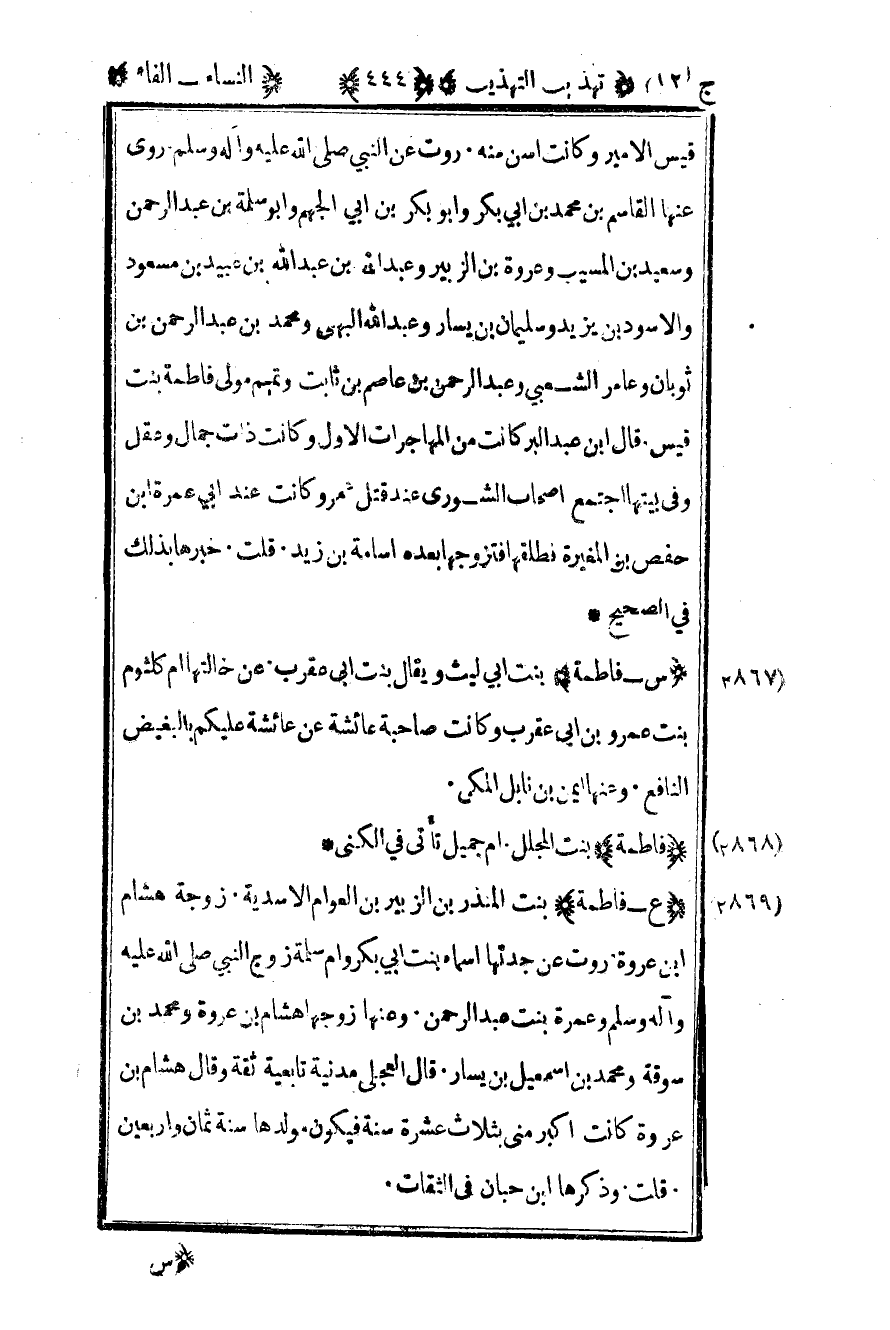 ج (١٢) ﴿ تهذيب التهذيب ﴾ ﴿ ٤٤٤ ﴾ ﴿ النساء ـ الفاء ﴾
قيس الامير وكانت اسن منه · روت عن النبي صلى الله عليه وآله وسلم · روى
عنها القاسم بن محمد بن ابي بكر وابو بكر بن ابي الجهم وابو سلمة بن عبد الرحمن
وسعيد بن المسيب وعروة بن الزبير وعبد الله بن عبد الله بن عبيد بن مسعود
والاسود بن يزيد وسليمان بن يسار وعبد الله البهي ومحمد بن عبد الرحمن بن
ثوبان وعامر الشعبي وعبد الرحمن بن عاصم بن ثابت وتميم مولى فاطمة بنت
قيس · قال ابن عبد البر كانت من المهاجرات الاول وكانت ذات جمال وعقل
وفى بيتها اجتمع اصحاب الشورى عند قتل عمر وكانت عند ابي عمرة ابن
حفص بن المغيرة فطلقها فتزوجها بعده اسامة بن زيد · قلت · خبرها بذلك
في الصحيح *
(٢٨٦٧) ﴿ س ـ فاطمة ﴾ بنت ابي ليث ويقال بنت ابى عقرب · عن خالتها ام كلثوم
بنت عمرو بن ابى عقرب وكانت صاحبة عائشة عن عائشة عليكم بالبغيض
النافع · وعنها ايمن بن نابل المكي ·
(٢٨٦٨) ﴿ فاطمة ﴾ بنت المجلل · ام جميل تأتى في الكنى *
(٢٨٦٩) ﴿ ع ـ فاطمة ﴾ بنت المنذر بن الزبير بن العوام الاسدية · زوجة هشام
ابن عروة · روت عن جدتها اسماء بنت ابي بكر وام سلمة زوج النبي صلى الله عليه
وآله وسلم وعمرة بنت عبد الرحمن · وعنها زوجها هشام بن عروة ومحمد بن
سوقة ومحمد بن اسمعيل بن يسار · قال العجلي مدنية تابعية ثقة وقال هشام بن
عروة كانت اكبر منى بثلاث عشرة سنة فيكون · مولدها سنة ثمان واربعين
· قلت · وذكرها ابن حبان فى الثقات ·
﴿ س